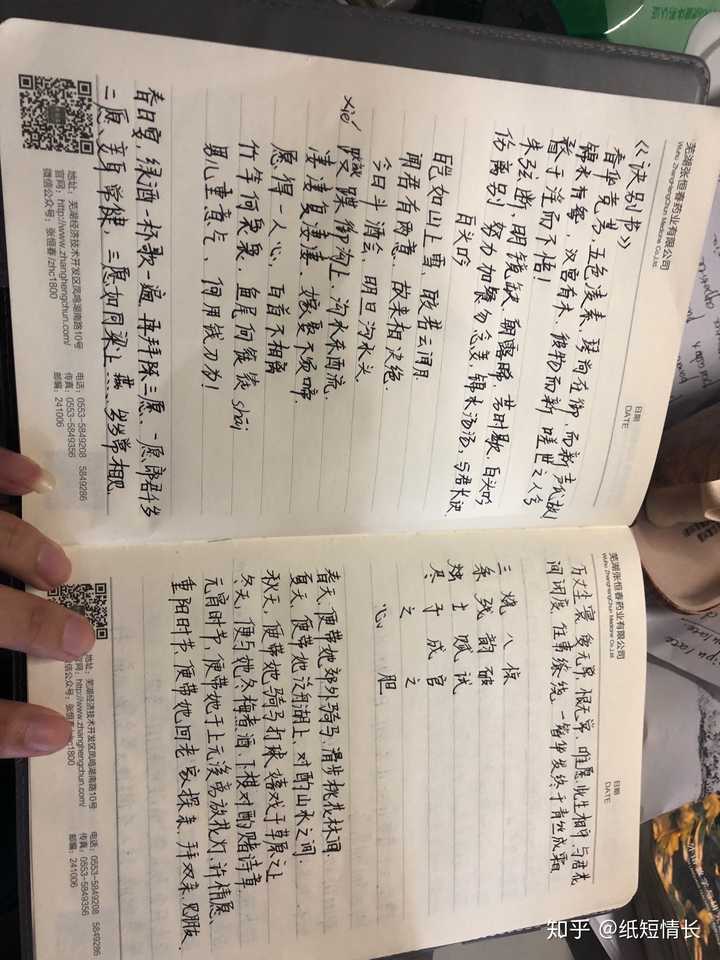 芜湖张恒春药业有限公司
Wuhu ZhangHengChun Medicine Co.,Ltd.
日期
DATE
《诀别书》
春华竞芳,五色凌素,琴尚在御,而新声代故!
锦水有鸳,汉宫有木,彼物而新,嗟世之人兮
瞀于淫而不悟!
朱弦断,明镜缺,朝露晞,芳时歇,白头吟
伤离别,努力加餐勿念妾,锦水汤汤,与君长诀
白头吟
皑如山上雪,皎若云间月.
闻君有两意,故来相决绝.
今日斗酒会,明旦沟水头
xiè
躞蹀御沟上,沟水东西流.
凄凄复凄凄,嫁娶不须啼.
愿得一人心,白首不相离
竹竿何袅袅,鱼尾何簁簁 shāi
男儿重意气,何用钱刀为!
春日宴,绿酒一杯歌一遍,再拜陈三愿,一愿郎君千岁
二愿妾身常健,三愿如同梁上燕,岁岁常相见
地址:芜湖经济技术开发区凤鸣湖南路10号
官网:http://www.zhanghengchun.com/
微信公众号:张恒春/zhc1800
电话:0553-5849208 5849286
传真:0553-5849356
邮编:241006
芜湖张恒春药业有限公司
Wuhu ZhangHengChun Medicine Co.,Ltd.
日期
DATE
万丈尘寰,爱无算,恨无算,唯愿此生相守,与君花
间闲度,任事缘绕,一留华发终于青丝成霜
三烧八级
条线韵破
烛士赋试
尽子成宫
之之
心胆
春天,便带她郊外骑马,漫步桃花林间.
夏天,便带她泛舟湖上,对酌山水之间
秋天,便带她骑马打球,嬉戏于草原之上
冬天,便与她折梅煮酒,下棋对酌赌诗章.
元宵时节,便带她于上元沟旁放花灯,许情愿、
重阳时节,便带她回老家探亲,拜双亲,见朋友.
地址:芜湖经济技术开发区凤鸣湖南路10号
官网:http://www.zhanghengchun.com/
微信公众号:张恒春/zhc1800
电话:0553-5849208 5849286
传真:0553-5849356
邮编:241006
知乎 @纸短情长